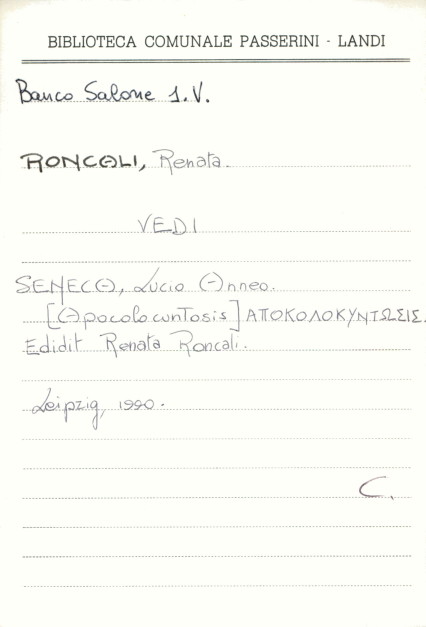 BIBLIOTECA COMUNALE PASSERINI - LANDI
Banco Salone 1.V.
RONCALI, Renata.
VEDI
SENECA, Lucio Anneo.
[Apocolocuntosis] ΑΠΟΚΟΛΟΚΥΝΤΩΣΙΣ.
Edidit Renata Roncali.
Leipzig, 1990.
C.